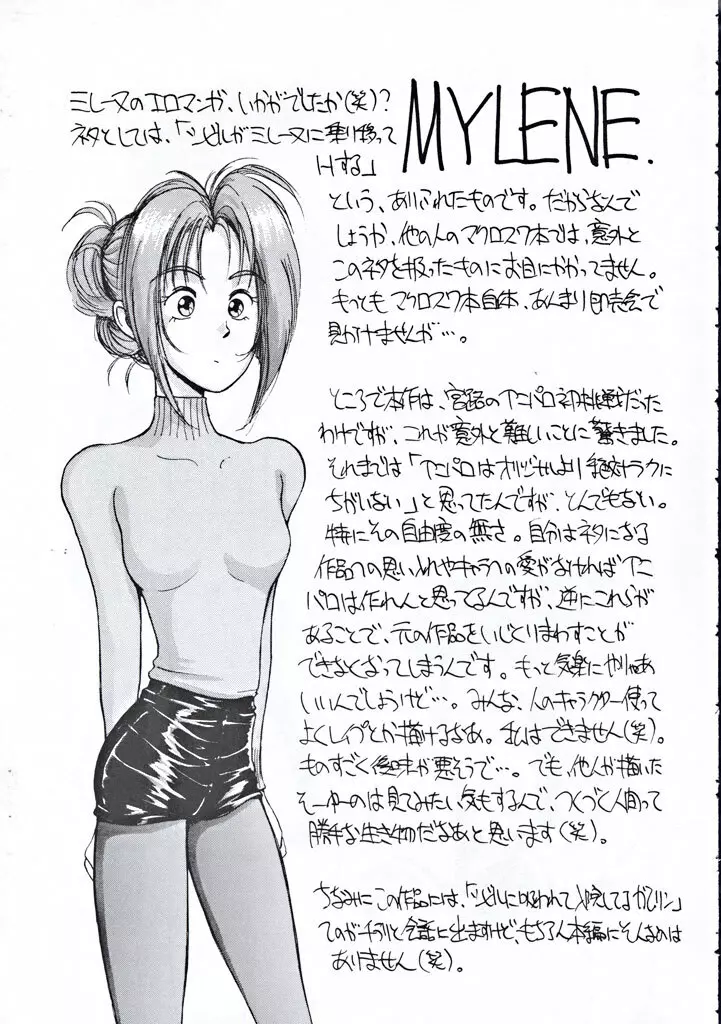 ミレーヌのエロマンガ、いかがでしたか(笑)?
MYLENE.
ネタとしては、「シビルがミレーヌに乗り移って
Hする」
という、ありふれたものです。だからなんで
しょうか、他の人のマクロス7本では、意外と
このネタを扱ったものにお目にかかってません。
もっともマクロス7本自体、あんまり即売会で
見かけませんが…。
ところで本作は、宮路のアニパロ初挑戦だった
わけですが、これが意外と難しいことに驚きました。
それまでは「アニパロはオリジナルより絶対ラクに
ちがいない」と思ってたんですが、とんでもない。
特にその自由度の無さ。自分はネタになる
作品への思い入れやキャラへの愛がなければアニ
パロは作れんと思ってるんですが、逆にこれらが
あることで、元の作品をいじくりまわすことが
できなくなってしまうんです。もっと気楽にやりゃあ
いいんでしょうけど…。みんな、人のキャラクター使って
よくレイプとか描けるなあ。私はできません(笑)。
ものすごく後味が悪そうで…。でも、他人が描いた
そーゆーのは見てみたい気もするんで、つくづく人間って
勝手な生き物だなあと思います(笑)。
ちなみにこの作品には、「シビルに吸われて入院してるガムリン」
てのがチラリと会話に出ますけど、もちろん本編にそんなのは
ありません(笑)。